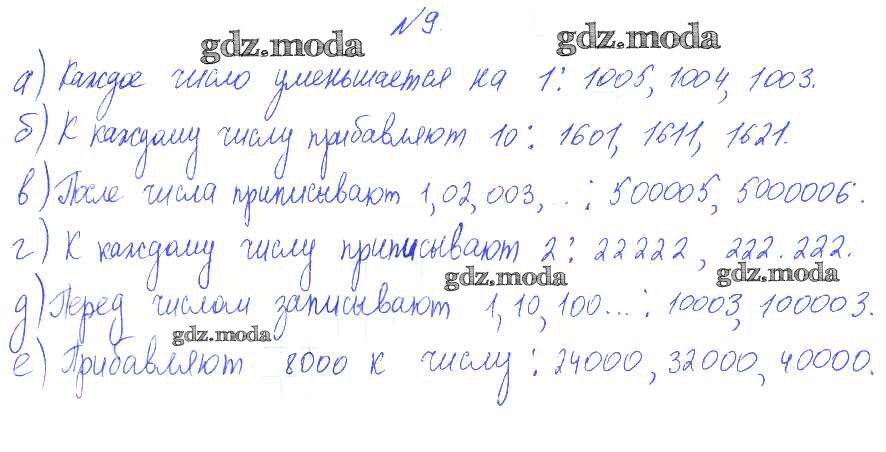 №9.
gdz.moda gdz.moda
а) Каждое число уменьшается на 1: 1005, 1004, 1003.
б) К каждому числу прибавляют 10: 1601, 1611, 1621.
в) После числа приписывают 1, 02, 003, ..: 500005, 5000006.
г) К каждому числу приписывают 2: 22222, 222.222.
gdz.moda gdz.moda
д) Перед числом записывают 1, 10, 100...: 10003, 100003.
gdz.moda
е) Прибавляют 8000 к числу: 24000, 32000, 40000.